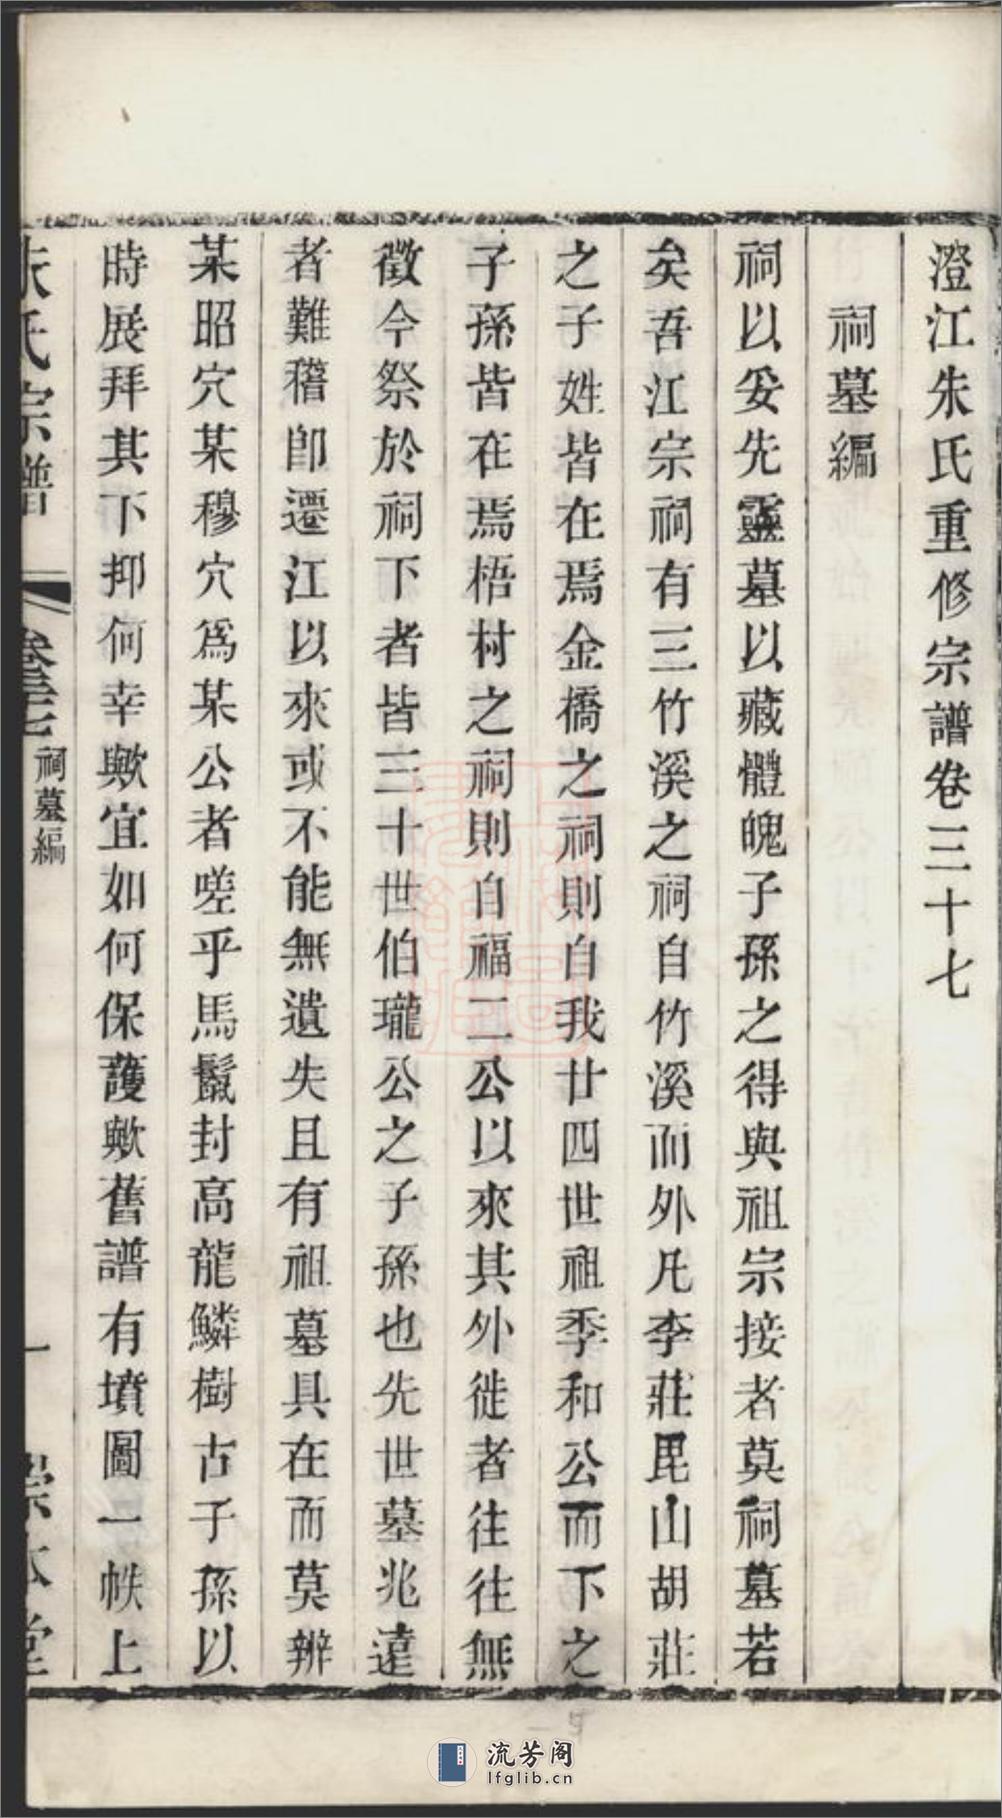 澄江朱氏重修宗譜卷三十七
祠墓編
祠以妥先靈墓以藏體魄子孫之得與祖宗接者莫祠墓若
矣吾江宗祠有三竹溪之祠自竹溪而外凡李莊毘山胡莊
之子姓皆在焉金橋之祠則自我廿四世祖季和公而下之
子孫皆在焉梧村之祠則自福二公以來其外徙者往往無
徵今祭於祠下者皆三十世伯瓏公之子孫也先世墓兆遠
者難稽卽遷江以來或不能無遺失且有祖墓具在而莫辨
某昭穴某穆穴爲某公者嗟乎馬鬛封高龍鱗樹古子孫以
時展拜其下抑何幸歟宜如何保護歟舊譜有墳圖一帙上
朱氏宗譜
卷三十七
祠墓編
一
崇本堂
流芳阁
lfglib.cn